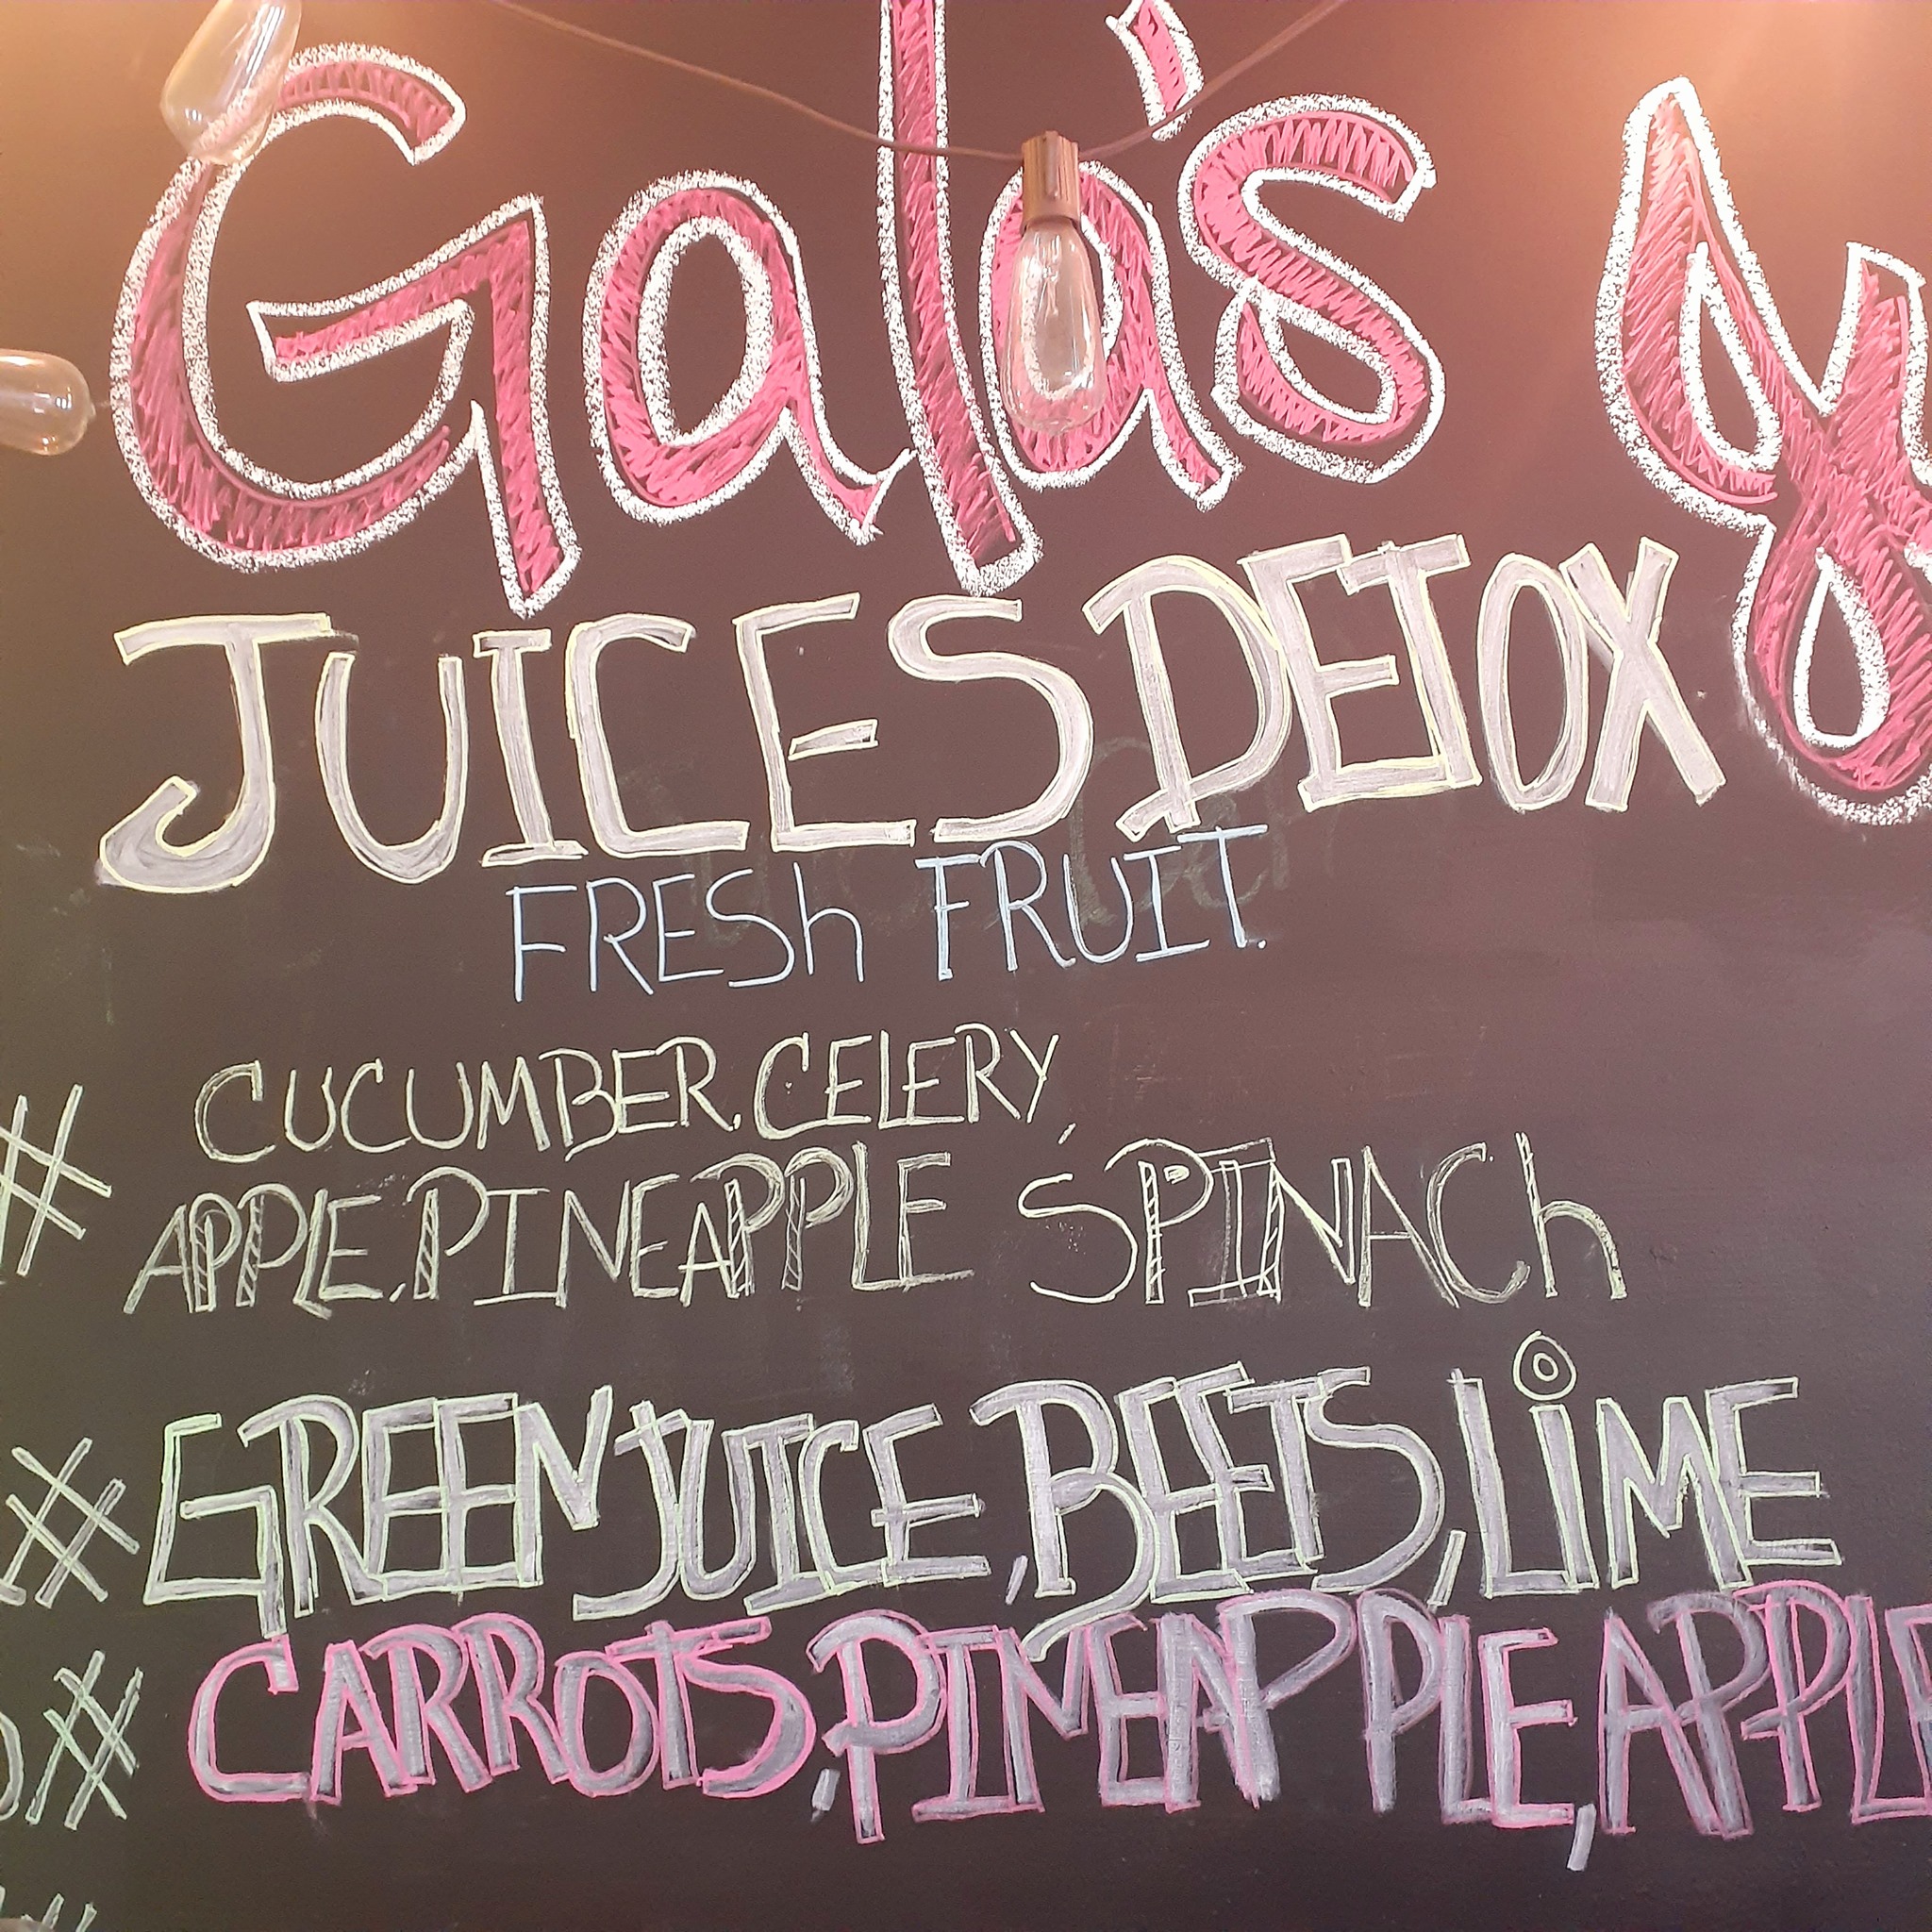 Gala's
JUICES DETOX
FRESh FRUIT.
# CUCUMBER, CELERY,
APPLE, PINEAPPLE SPINACh
# GREEN JUICE, BEETS, LiME
# CARROTS, PINEAPPLE, APPLE